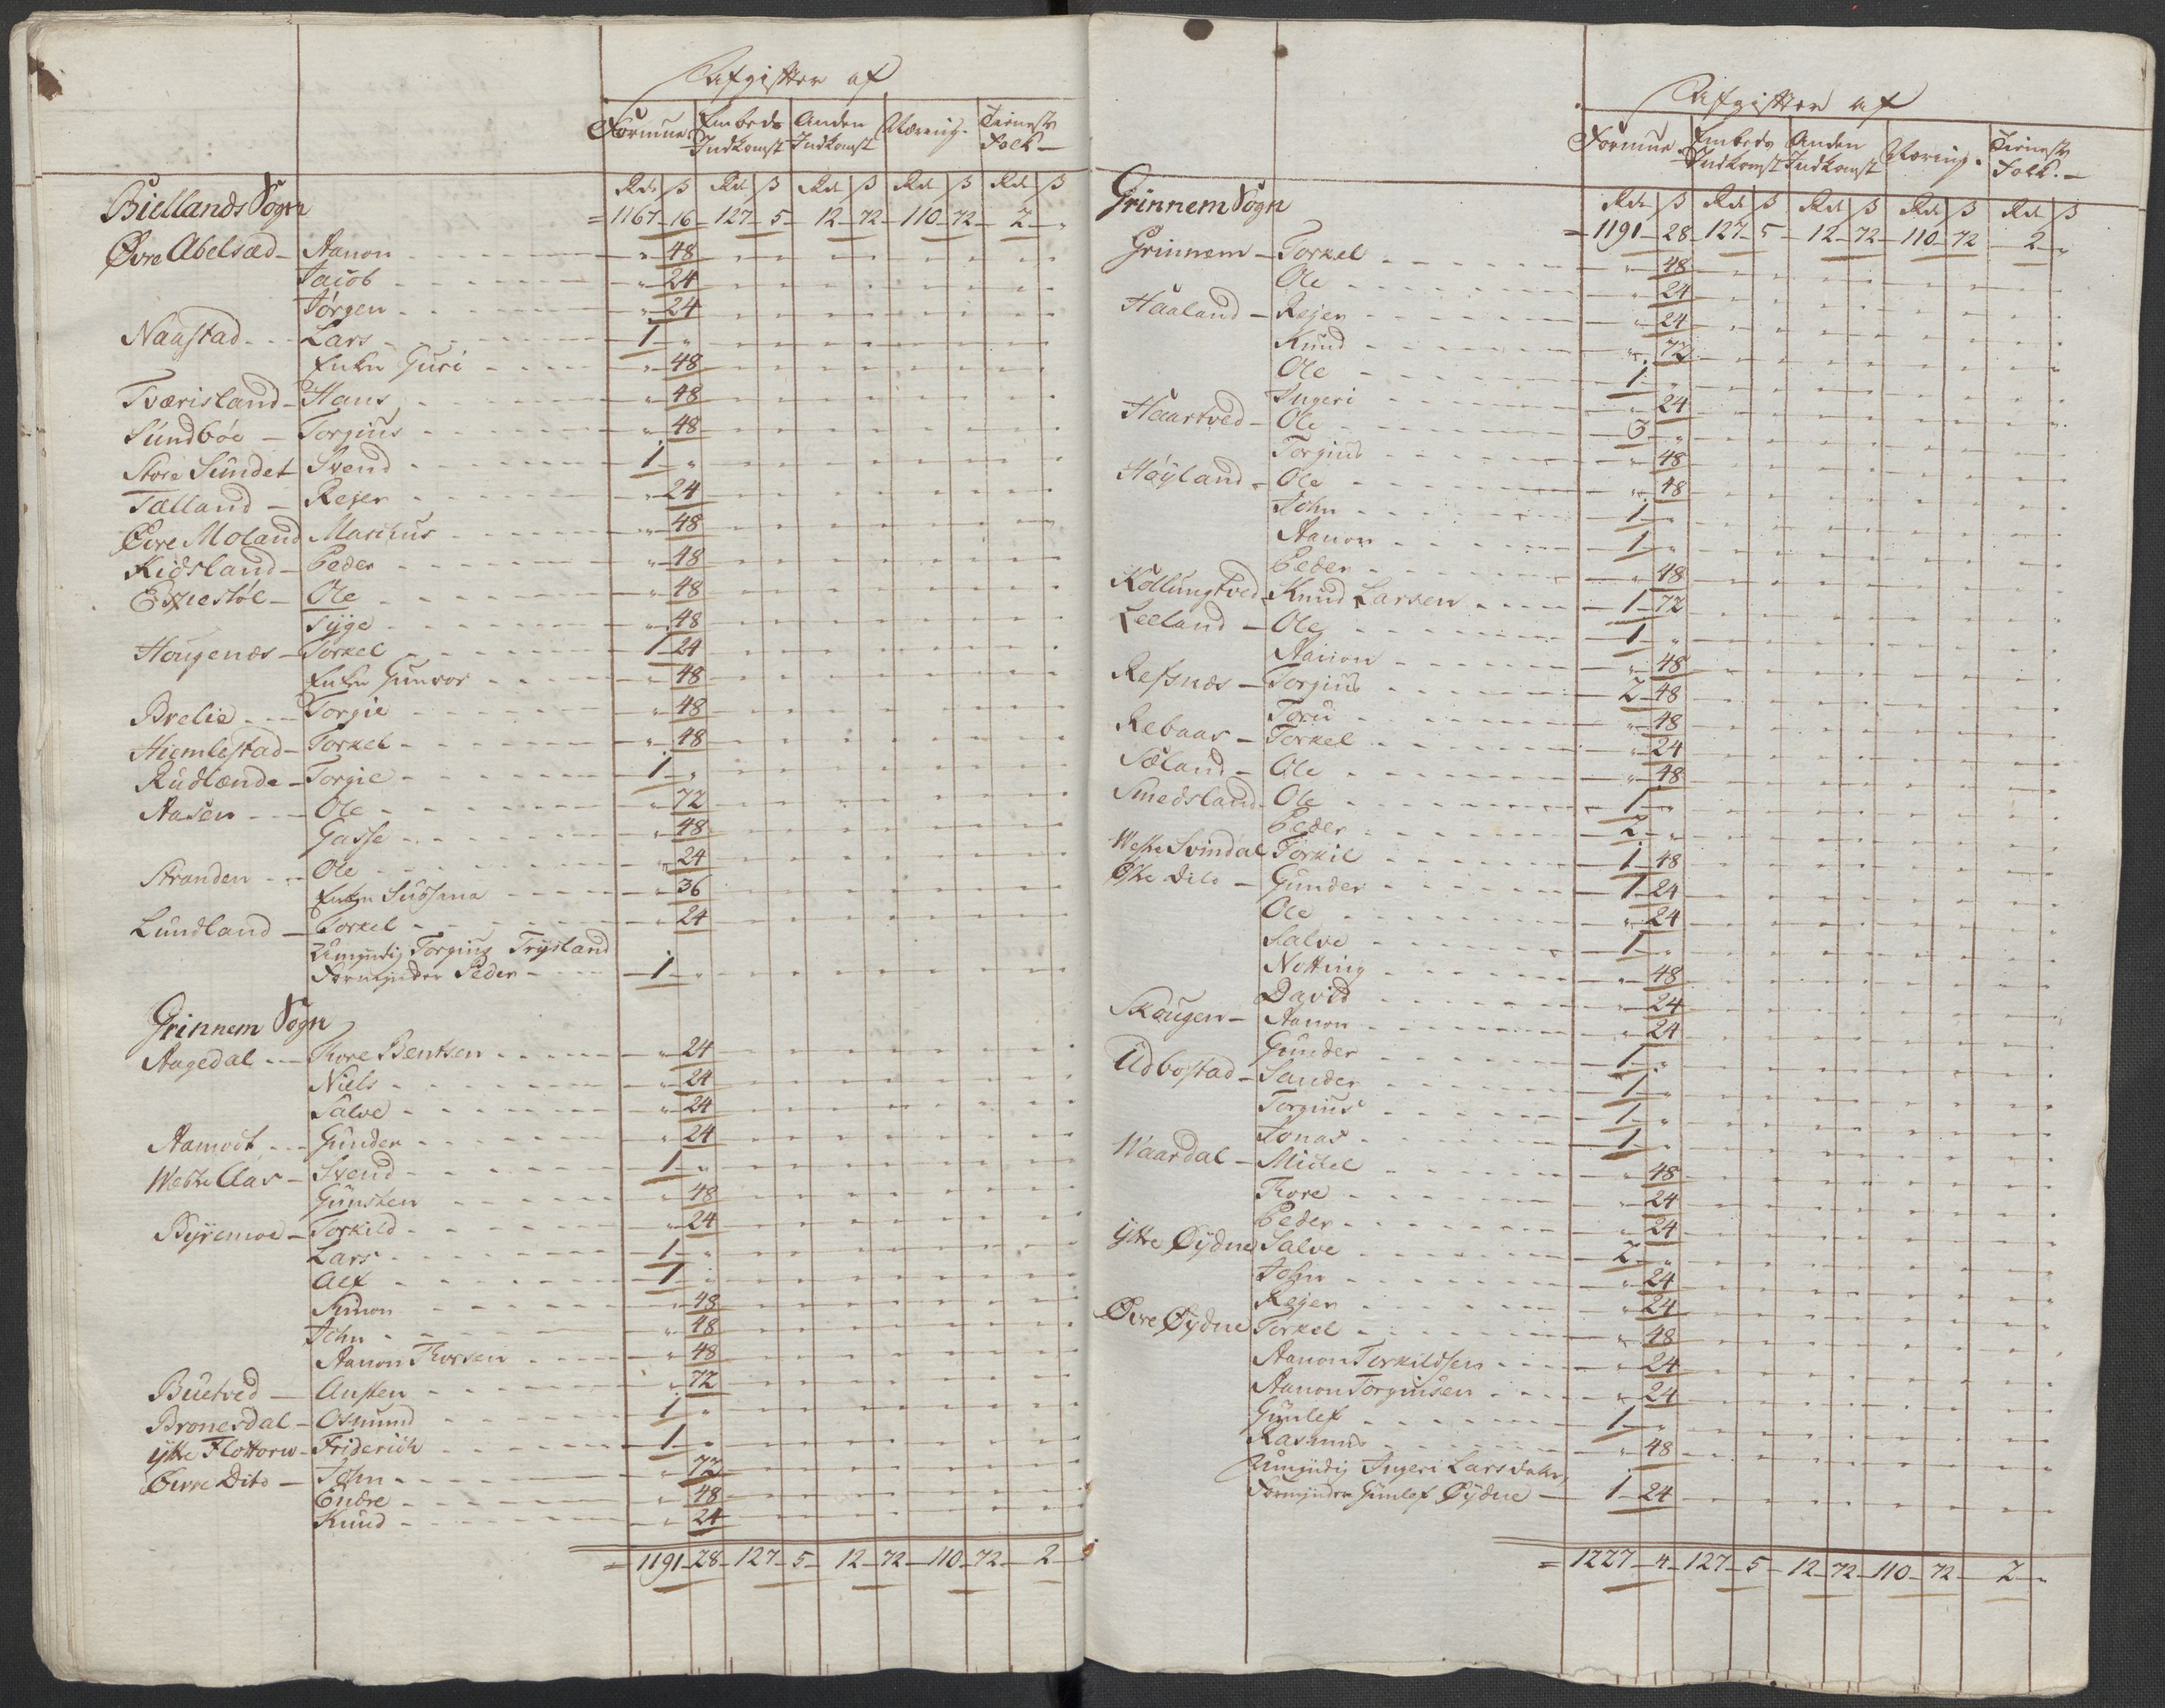 Afgifter af
Formue Embeds Indkomst Anden Indkomst Næring. Tieneste Folk —
Rd ß Rd ß Rd ß Rd ß Rd ß
Biellands Sogn = 1167 - 16 - 127 - 5 - 12 - 72 - 110 - 72 - 2 - "
Øvre Abelsæd - Aanon " - 48
Jacob " - 24
Jørgen " - 24
Naastad - Lars 1 - "
Enken Guri " - 48
Tværisland - Hans " - 48
Sundbøe - Torgius " - 48
Store Sundet Svend 1 - "
Tælland - Rejer " - 24
Øvre Moland Marcus " - 48
Kidsland - Peder " - 48
Espestøl - Ole " - 48
Tÿge " - 48
Hougenæs - Torkel 1 - 24
Enken Gunvor " - 48
Brelie - Torgie " - 48
Hiemlestad - Torkel " - 48
Rudlænde - Torgie 1 - "
Aasen - Ole " - 72
Gasse " - 48
Stranden - Ole " - 24
Enken Sussana " - 36
Lundland - Torkel " - 24
Umyndig Torgius Trÿsland
Formynder Peder 1 - "
Grinnem Sogn
Aagedal - Tore Bentsen " - 24
Niels " - 24
Salve " - 24
Aamodt - Gunder " - 24
Westre Aas - Svend 1 - "
Gunsten " - 48
Bÿremoe - Torkild " - 24
Lars 1 - "
Alf 1 - "
Simon " - 48
John " - 48
Aanon Thorsen " - 48
Buetved - Austen " - 72
Bronesdal - Osmund 1 - "
ÿtre Flottorp - Friderich 1 - "
Øvre Dito - John " - 72
Endre " - 48
Knud " - 24
= 1191 - 28 - 127 - 5 - 12 - 72 - 110 - 72 - 2 -
Afgifter af
Formue Embeds Indkomst Anden Indkomst Næring. Tieneste Folk. —
Rd ß Rd ß Rd ß Rd ß Rd ß
Grinnem Sogn = 1191 - 28 - 127 - 5 - 12 - 72 - 110 - 72 - 2 - "
Grinnem - Torkel " - 48
Ole " - 24
Haaland - Rejer " - 24
Knud " - 72
Ole 1 - "
Ingeri " - 24
Haartved - Ole 3 - "
Torgius " - 48
Høyland - Ole " - 48
John 1 - "
Aanon 1 - "
Peder " - 48
Kollungtved - Knud Larsen 1 - 72
Leeland - Ole 1 - "
Aanon " - 48
Refsnæs - Torgius 2 - 48
Toru " - 48
Rebaas - Torkel " - 24
Sæland - Ole " - 48
Smedsland - Ole 1 - "
Peder 2 - "
Westre Svindal Torkil 1 - 48
Østre Dito - Gunder 1 - 24
Ole " - 24
Salve 1 - "
Notting " - 48
David " - 24
Skougen - Aanon " - 24
Gunder 1 - "
Udbostad - Sander 1 - "
Torgius 1 - "
Jonas 1 - "
Waardal - Michel " - 48
Tore " - 24
Peder " - 24
ÿtre Øÿdne Salve 2 - "
John " - 24
Rejer " - 24
Øvre Øÿdne Torkel " - 48
Aanon Torkildsen " - 24
Aanon Torgiusen " - 24
Gunlef 1 - "
Rasmus " - 48
Umyndig Ingeri Larsdatter,
Formynder Gunlef Øÿdne — 1 - 24
= 1227 - 4 - 127 - 5 - 12 - 72 - 110 - 72 - 2 - "